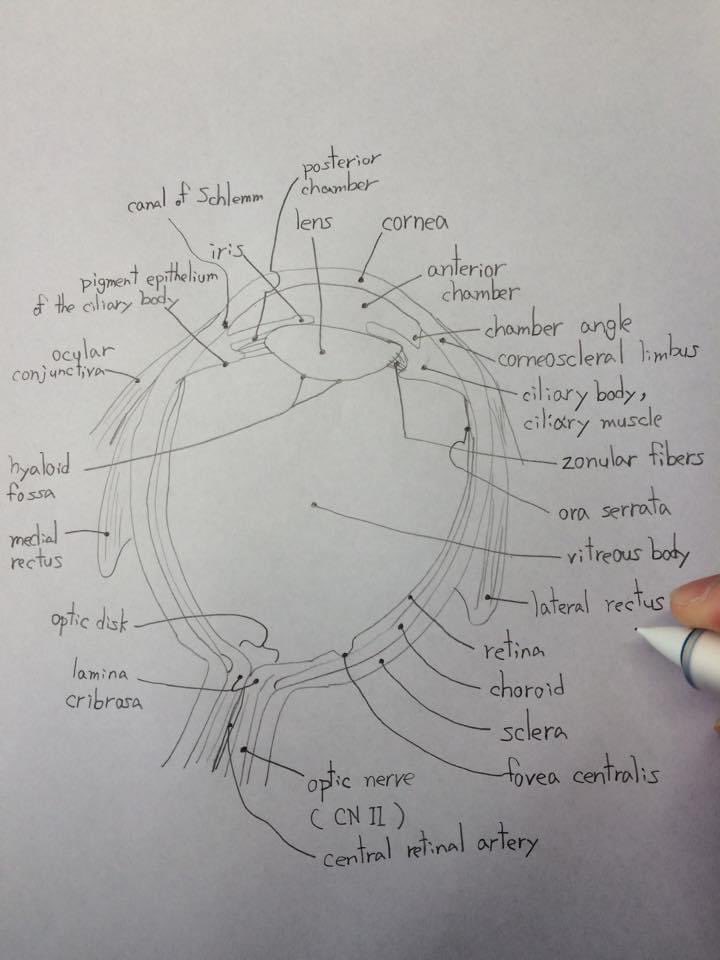 posterior
chamber
canal of Schlemm
lens
cornea
iris
anterior
chamber
pigment epithelium
of the ciliary body
chamber angle
corneoscleral limbus
ocular
conjunctiva
ciliary body,
ciliary muscle
zonular fibers
hyaloid
fossa
ora serrata
medial
rectus
vitreous body
lateral rectus
optic disk
retina
lamina
cribrosa
choroid
sclera
fovea centralis
optic nerve
(CN II)
central retinal artery